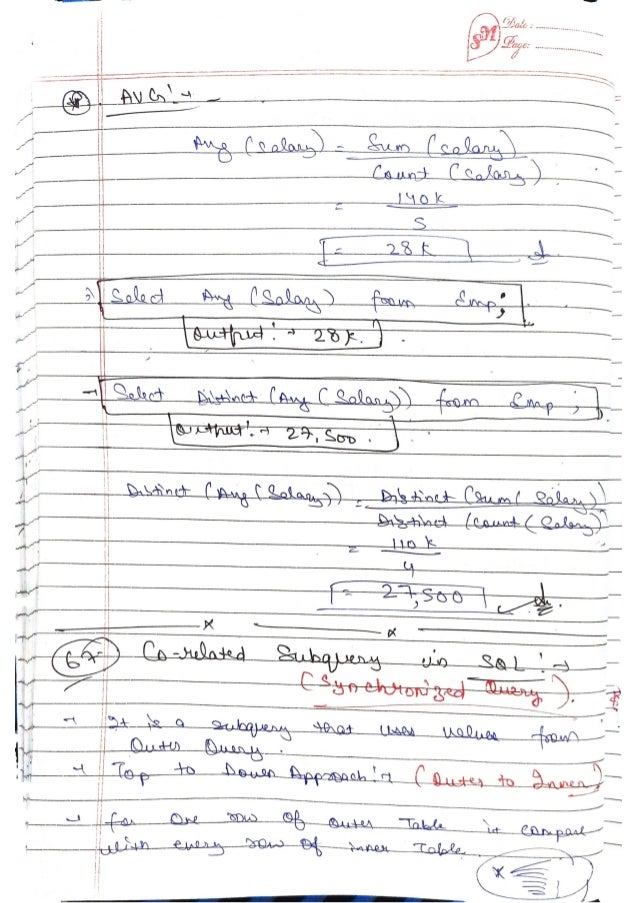 SM Date: ............
Page: ............
AVG :→
Avg (Salary) = Sum (Salary)
Count (Salary)
= 140K
5
= 28K
Select Avg (Salary) from Emp;
Output :→ 28K.
→ Select Distinct (Avg (Salary)) from Emp ;
Output :→ 27,500.
Distinct (Avg (Salary)) = Distinct (Sum( Salary))
Distinct (Count ( Salary)
= 110 K
4
= 27,500
x x
67- Co-related Subquery in SQL :→
(Synchronized Query).
→ It is a subquery that uses values from
Outer Query.
→ Top to Down Approach :→ (Outer to Inner)
→ for One row of outer Table it compare
with every row of inner Table